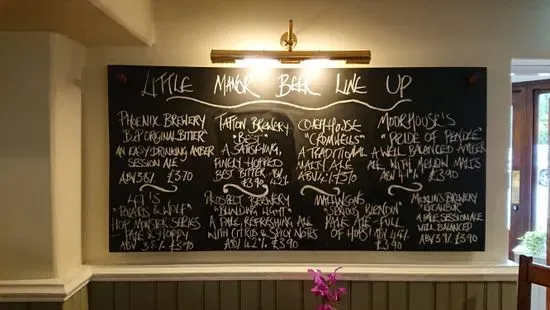 LITTLE MANOR BEER LINE UP
PHOENIX BREWERY
"ORIGINAL BITTER"
AN EASY DRINKING AMBER
SESSION ALE
ABV 3.8% £3.70
TATTON BREWERY
"BEST"
A SATISFYING,
FINELY HOPPED
BEST BITTER
£3.90 4.2%
COACH HOUSE
"CROMWELLS"
A TRADITIONAL
MALTY ALE
MOORHOUSE'S
"PRIDE OF PENDLE"
A WELL BALANCED AMBER
ALE WITH MALTS
ABV 4.1% £3.90
HOP MONSTER SERIES
PALE & HOPPY
£3.90
PROSPECT BREWERY
"BLINDING LIGHT"
A PALE REFRESHING ALE
WITH CITRUS & SPICY NOTES
ABV 4.2% £3.90
PALE ALE FULL
OF HOPS £3.90
MERLIN'S BREWERY
"EXCALIBUR"
A PALE SESSION ALE
WELL BALANCED
ABV 3.9% £3.90